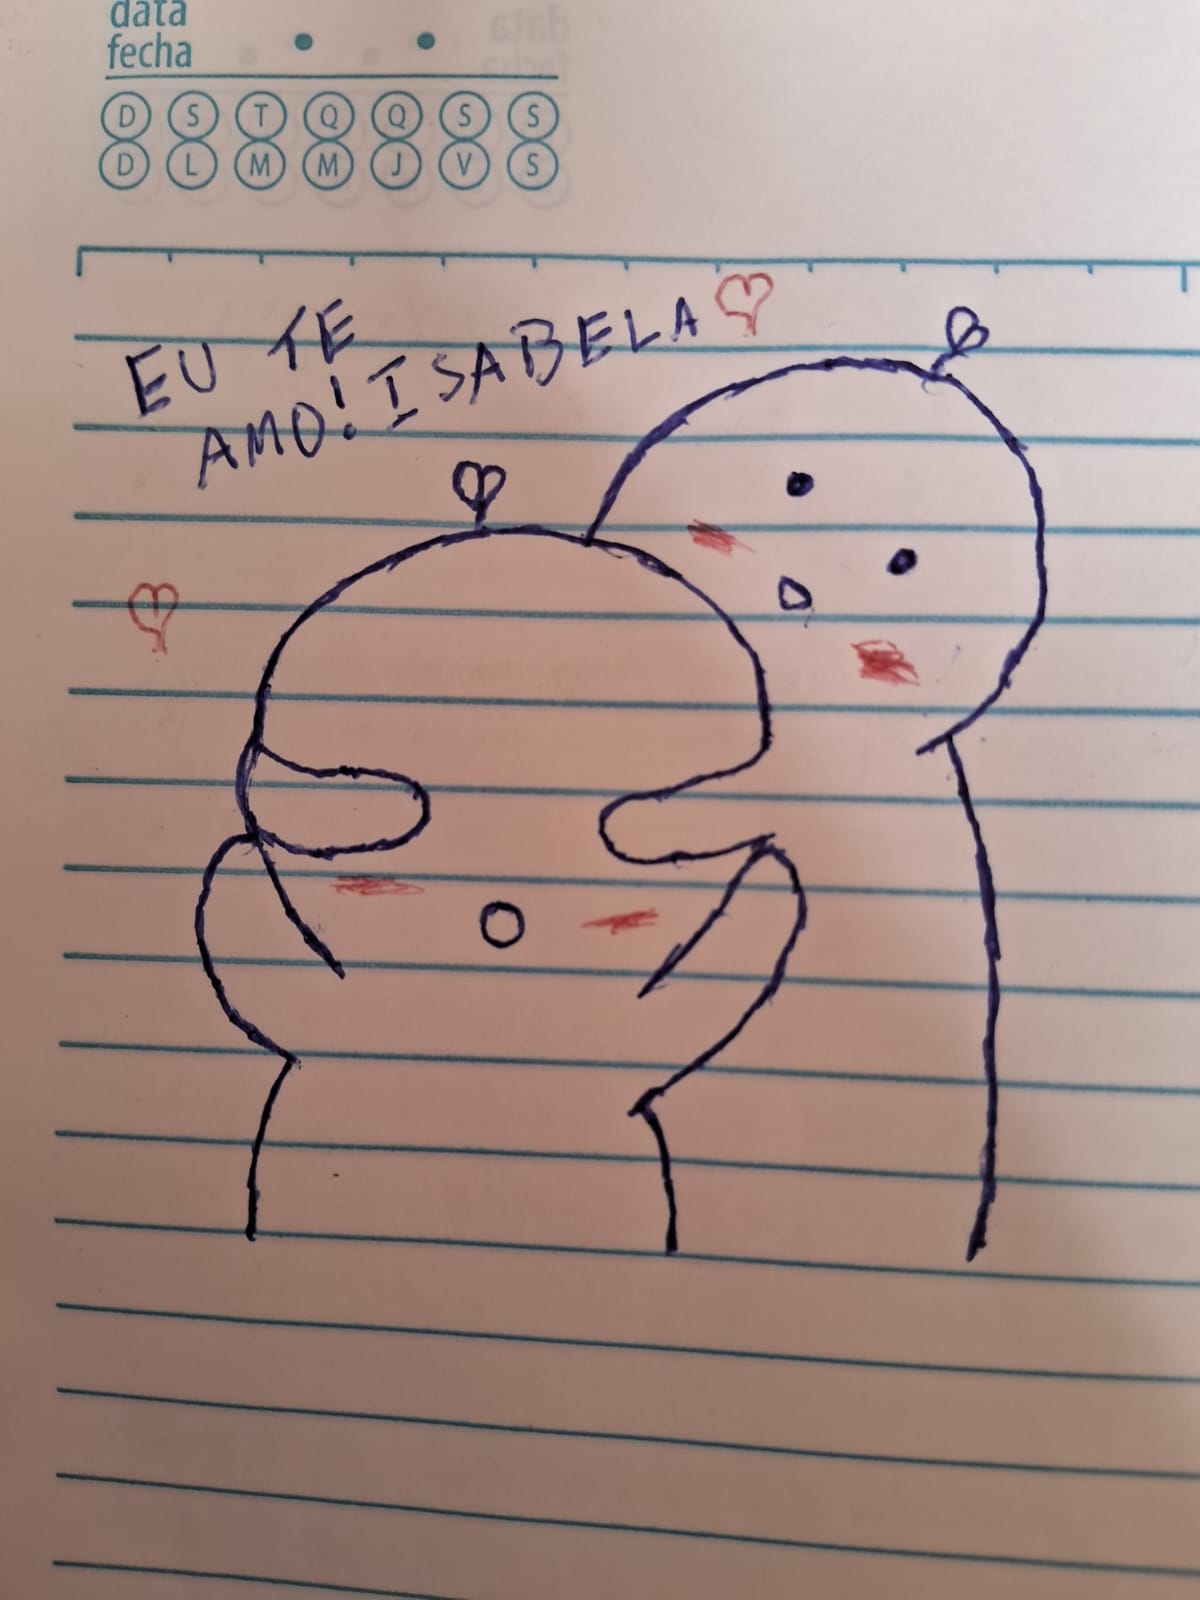 data
fecha
D S T Q Q S S
D L M M J V S
EU TE
AMO! ISABELA